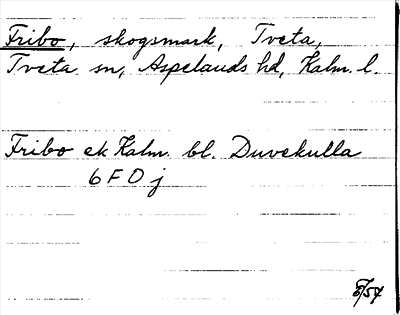 Fribo, skogsmark, Tveta,
Tveta sn, Aspelands hd, Kalm. l.
Fribo ek Kalm. bl. Duvekulla
6 F O j
8/54